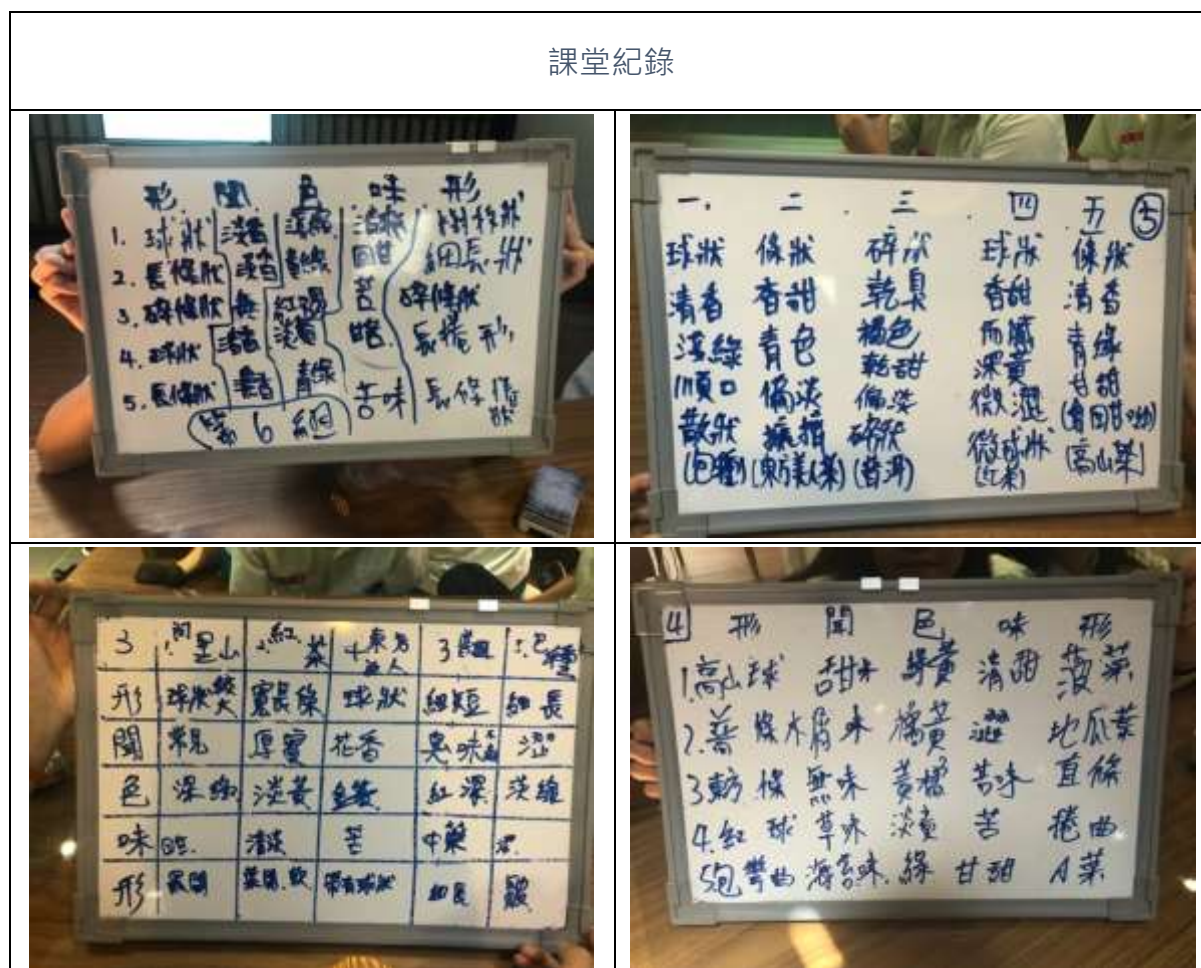 課堂紀錄
形 聞 色 味 形
1. 球狀 淡香 深綠 回甘 樹枝狀
2. 長條狀 淡香 黃綠 細長狀
3. 碎條狀 無 紅 苦 碎條狀
4. 球狀 清香 淡黃 長捲形
5. 長條狀 青綠 苦味 長條
第6組
一. 二. 三. 四 五 ⑤
球狀 條狀 碎狀 球狀 條狀
清香 香甜 乾臭 香甜 清香
深綠 青色 橘色 而膩 青綠
順口 偏淡 乾甜 深黃 甘甜
散狀 偏淡 微澀
(包種) (東方美人茶) 碎狀 微球狀 (高山茶)
(普洱) (紅茶)
3 1.阿里山 2.紅茶 4.東方美人 3 5.包種
形 球狀 較大 長條 球狀 細短 細長
聞 常見 厚蜜 花香 臭味 澀
色 深綠 淡黃 金黃 紅深 淡綠
味 清淡 苦 中藥
形 展開 帶有球狀 細長 皺
4 形 聞 色 味 形
1.高山球 甜味 綠黃 清甜 菠菜
2.普 條 木屑味 橘黃 澀 地瓜葉
3.東方 條 無味 黃橘 苦味 直條
4.紅 球 草味 淡黃 苦 捲曲
5.包 彎曲 海苔味 綠 甘甜 A菜